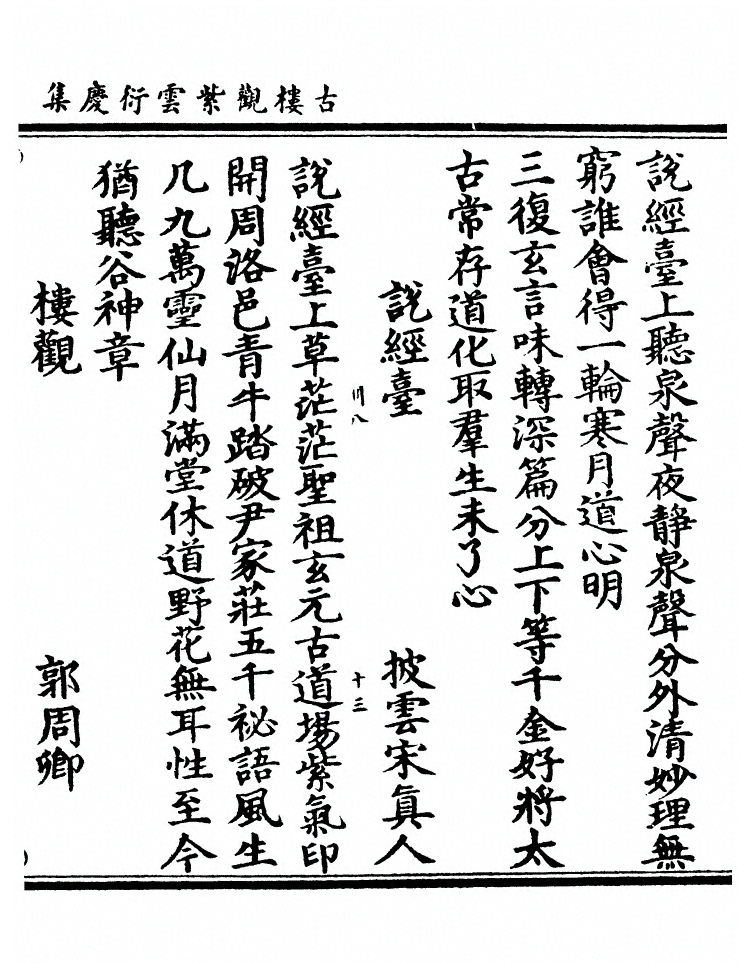 古樓觀紫雲衍慶集
說經臺上聽泉聲夜靜泉聲分外清妙理無
窮誰會得一輪寒月道心明
三復玄言味轉深篇分上下等千金好將太
古常存道化取羣生未了心
說經臺 披雲宋真人
川八 十三
說經臺上草茫茫聖祖玄元古道場紫氣印
開周洛邑青牛踏破尹家莊五千祕語風生
几九萬靈仙月滿堂休道野花無耳性至今
猶聽谷神章
樓觀 郭周卿